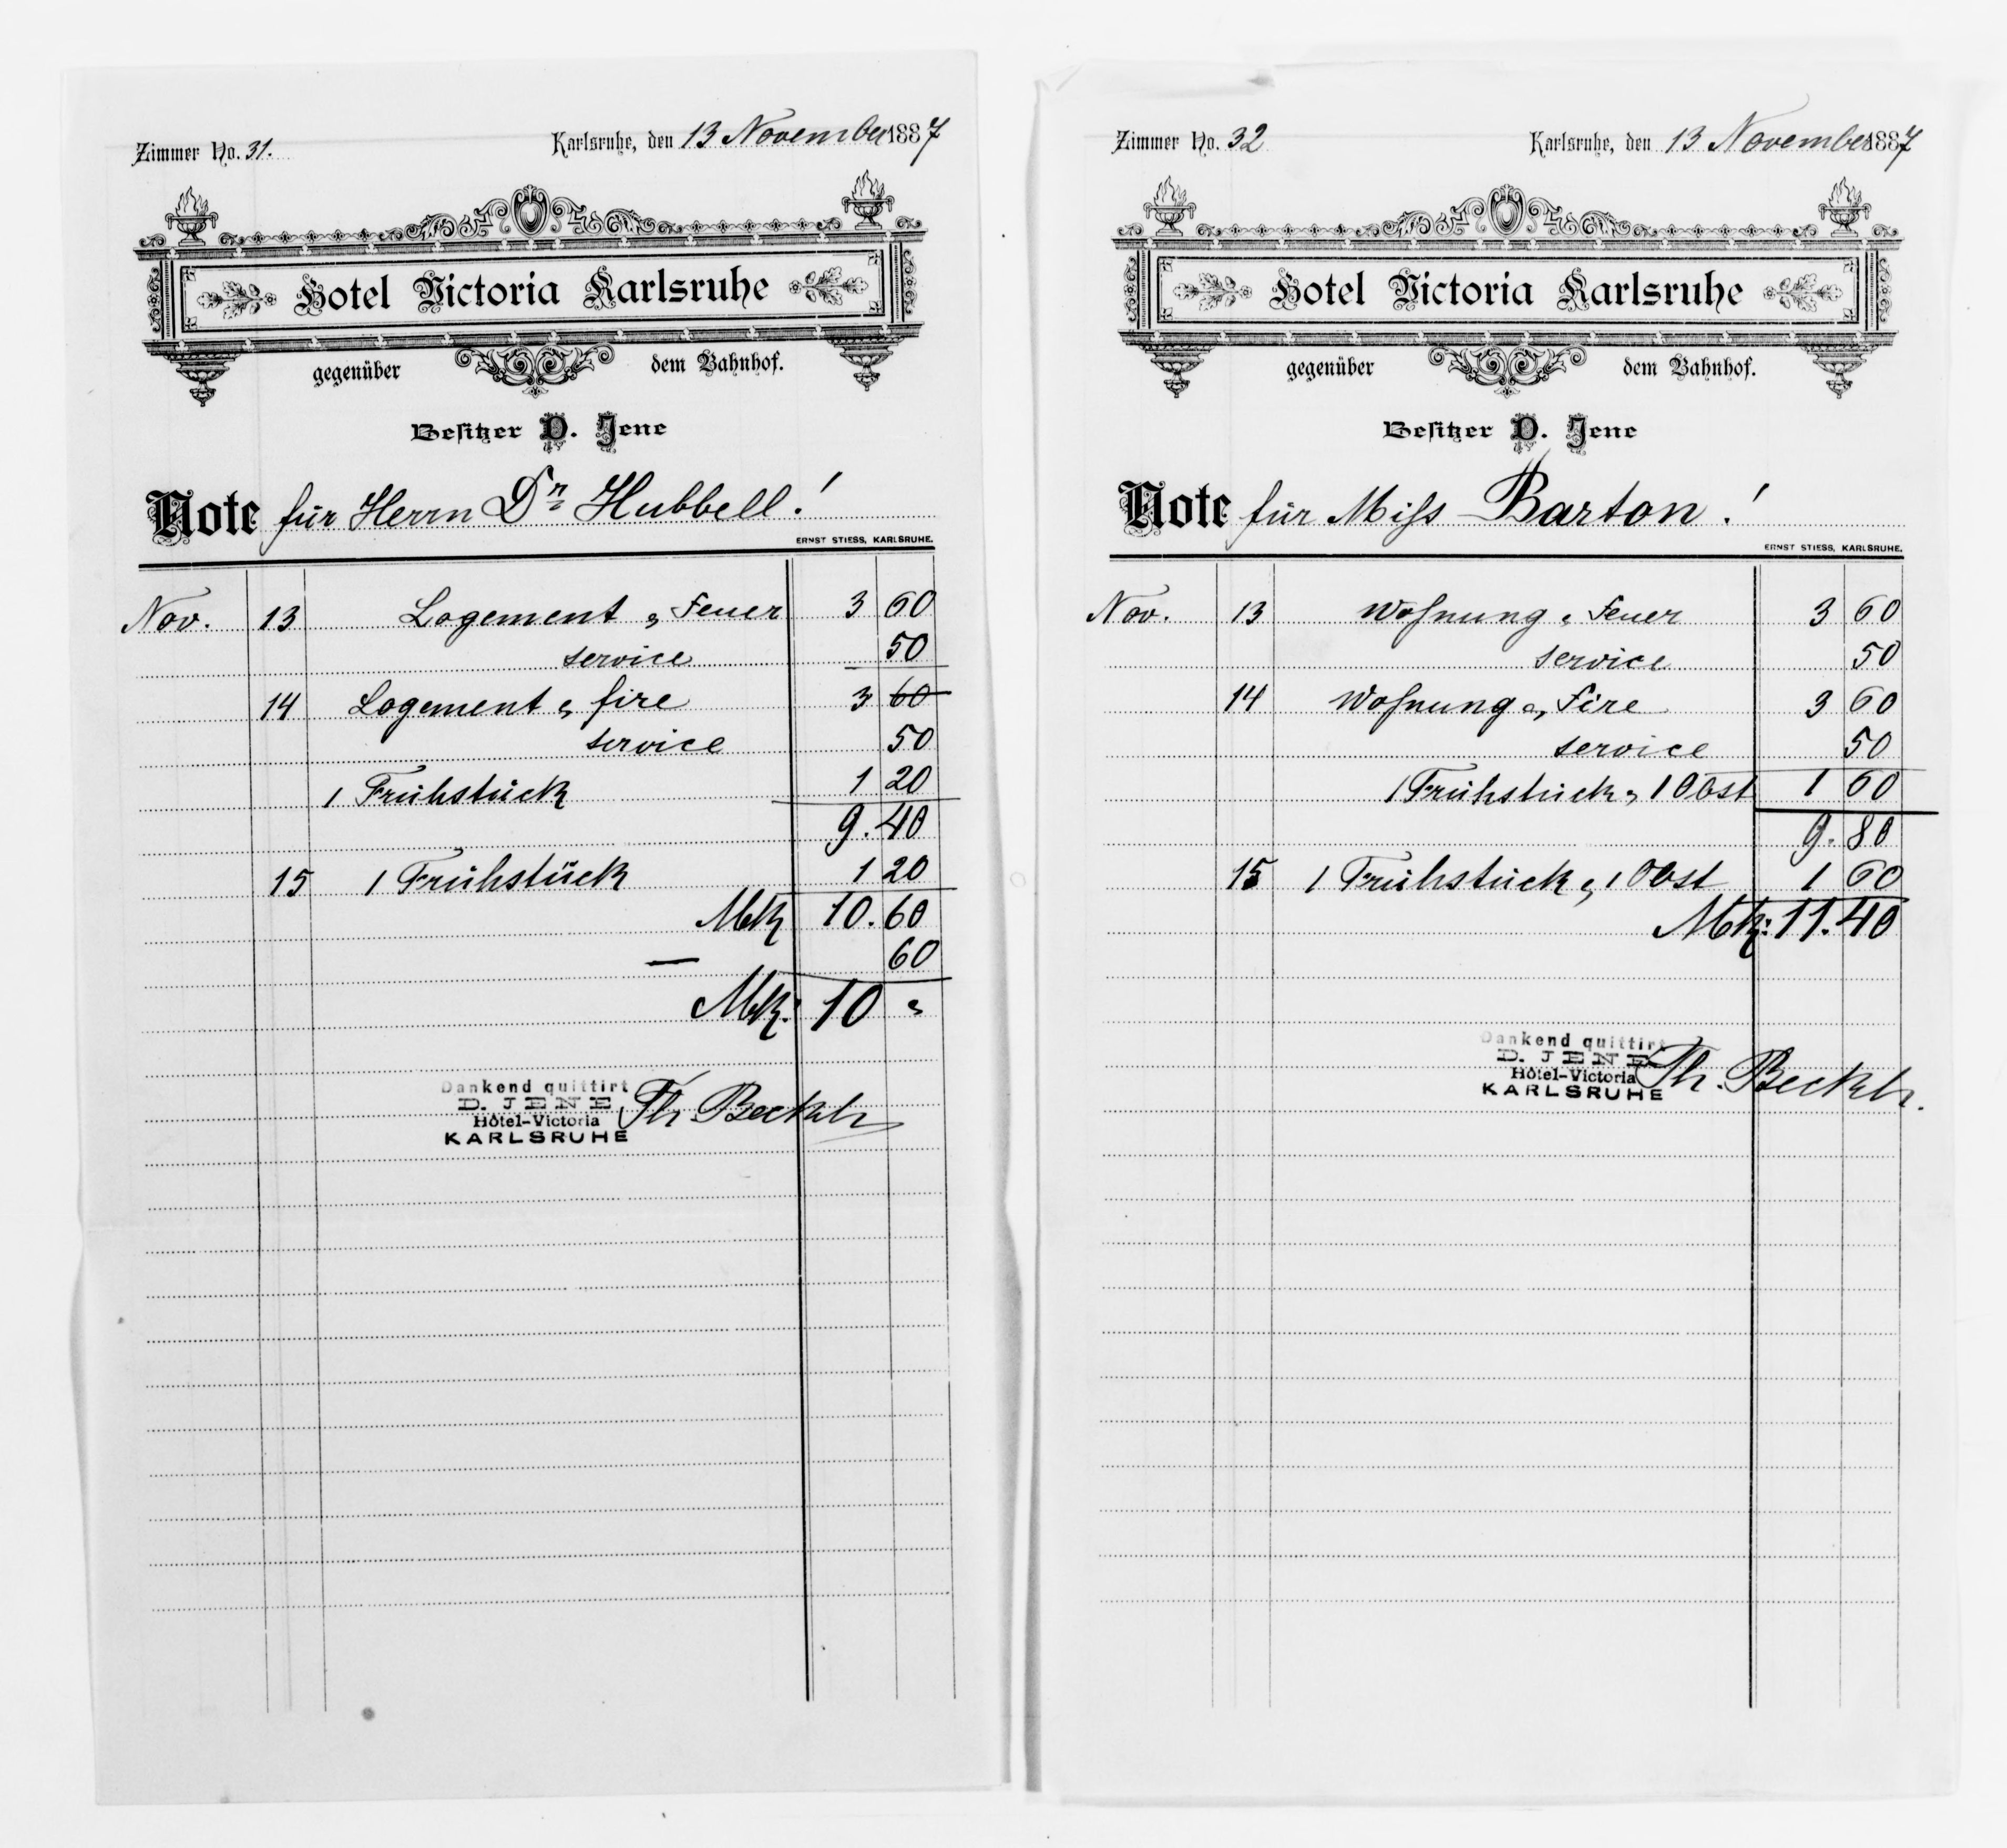 Zimmer No. 31. Karlsruhe, den 13 November 1887
Hotel Victoria Karlsruhe
gegenüber dem Bahnhof.
Besitzer D. Jene
Note für Herrn Dr Hubbell!
ERNST STIESS, KARLSRUHE.
Nov. 13 Logement & Feuer 3 60
service 50
14 Logement & fire 3 60
service 50
1 Frühstück 1 20
9.40
15 1 Frühstück 1 20
Mk 10.60
— 60
Mk: 10 "
Dankend quittirt
D. JENE
Hôtel-Victoria
KARLSRUHE
Th. Beckh
Zimmer No. 32 Karlsruhe, den 13 November 1887
Hotel Victoria Karlsruhe
gegenüber dem Bahnhof.
Besitzer D. Jene
Note für Miſs Barton!
ERNST STIESS, KARLSRUHE.
Nov. 13 Wohnung & Feuer 3 60
service 50
14 Wohnung & Fire 3 60
service 50
1 Frühstück & 1 Obst 1 60
9.80
15 1 Frühstück & 1 Obst 1 60
Mk: 11.40
Dankend quittirt
D. JENE
Hôtel-Victoria
KARLSRUHE
Th. Beckh.